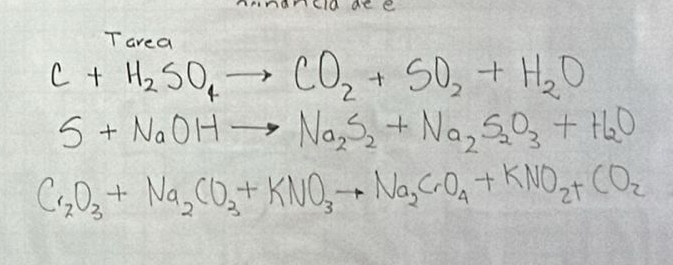 Tarea
C + H₂SO₄ → CO₂ + SO₂ + H₂O
S + NaOH → Na₂S₂ + Na₂S₂O₃ + H₂O
Cr₂O₃ + Na₂CO₃ + KNO₃ → Na₂CrO₄ + KNO₂ + CO₂